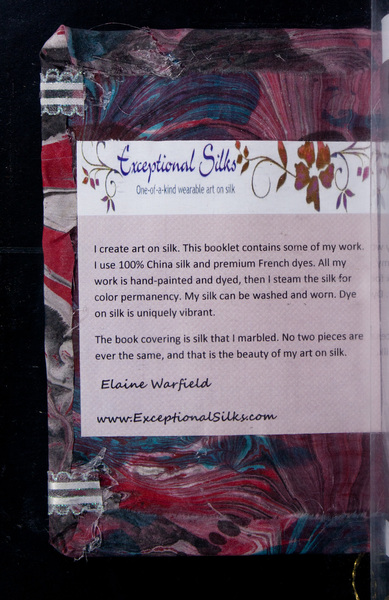 Exceptional Silks
One-of-a-kind wearable art on silk
I create art on silk. This booklet contains some of my work.
I use 100% China silk and premium French dyes. All my
work is hand-painted and dyed, then I steam the silk for
color permanency. My silk can be washed and worn. Dye
on silk is uniquely vibrant.
The book covering is silk that I marbled. No two pieces are
ever the same, and that is the beauty of my art on silk.
Elaine Warfield
www.ExceptionalSilks.com